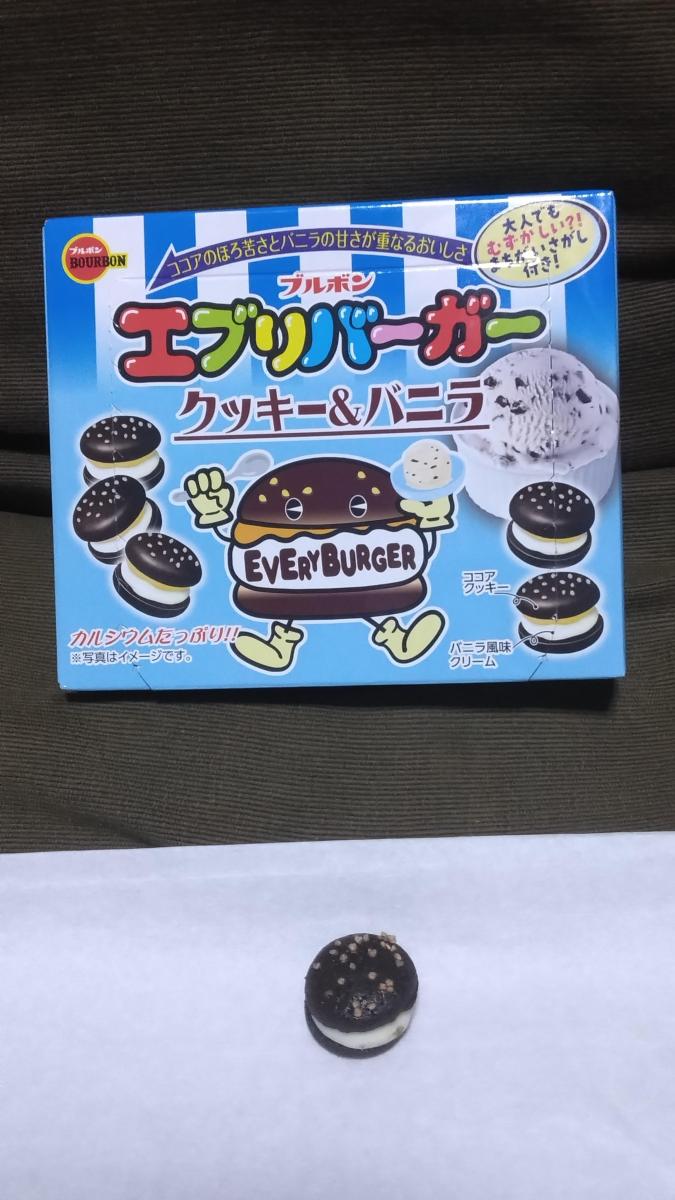 ブルボン
BOURBON
ココアのほろ苦さとバニラの甘さが重なるおいしさ
大人でも
むずかしい?!
まちがいさがし
付き!
ブルボン
エブリバーガー
クッキー&バニラ
EVERYBURGER
ココア
クッキー
バニラ風味
クリーム
カルシウムたっぷり!!
※写真はイメージです。